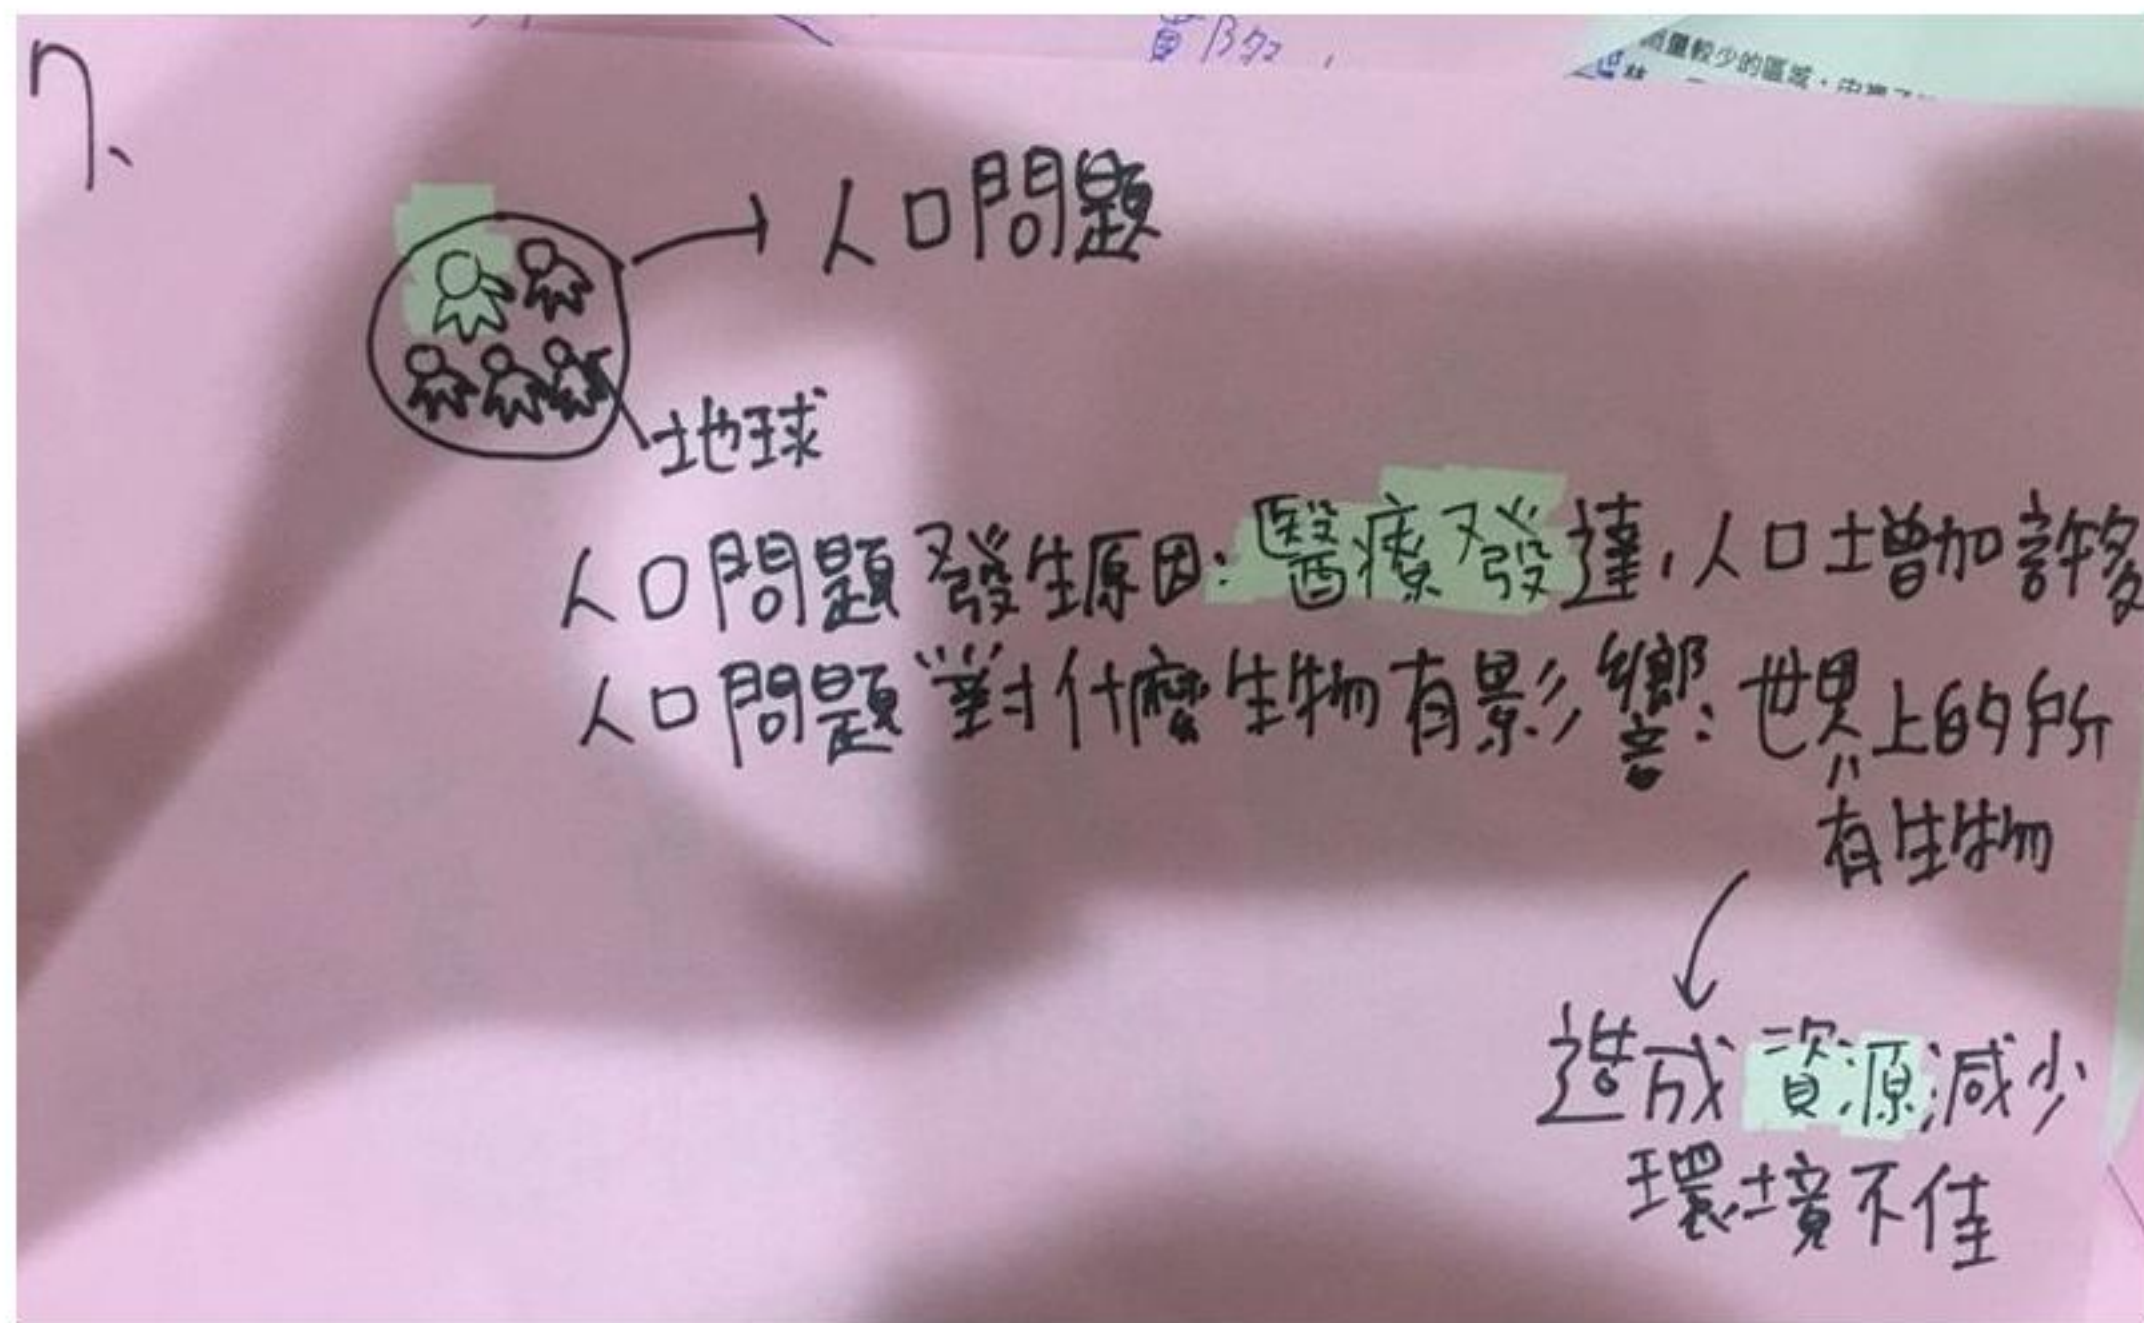 7、
人口問題
地球
人口問題發生原因:醫療發達,人口增加許多
人口問題對什麼生物有影響:世界上的所
有生物
造成資源減少
環境不佳